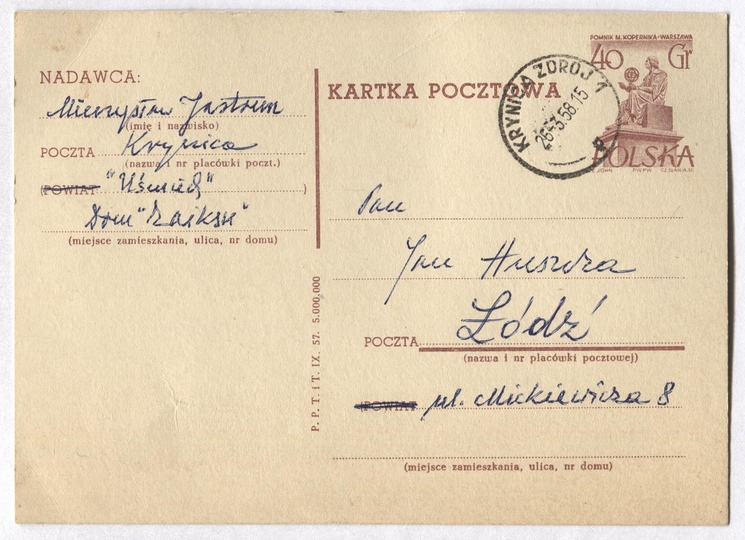 NADAWCA:
Mieczysław Jastrun
(imię i nazwisko)
POCZTA Krynica
(nazwa i nr placówki poczt.)
(POWIAT "Uśmiech" )
Dom "Zaiksu"
(miejsce zamieszkania, ulica, nr domu)
POMNIK M. KOPERNIKA-WARSZAWA
40 Gr
POLSKA
KRYNICA ZDRÓJ 1
26-3.58.15
KARTKA POCZTOWA
Pan
Jan Huszcza
Łódź
POCZTA
(nazwa i nr placówki pocztowej)
POWIAT ul. Mickiewicza 8
(miejsce zamieszkania, ulica, nr domu)
P. P. T. i T. IX. 57. 5.000.000